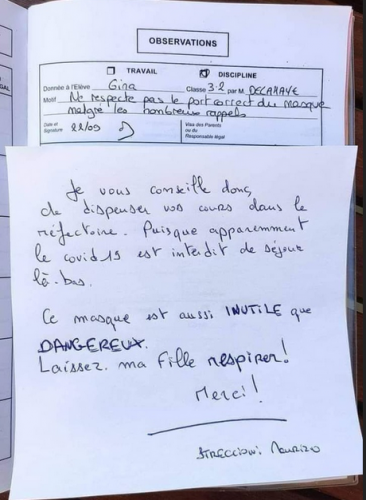 OBSERVATIONS
TRAVAIL
DISCIPLINE
Donnée à l'Elève Gina Classe 3.2 par M. DELAHAYE
Motif Ne respecte pas le port correct du masque
malgré les nombreux rappels
Date et
Signature
22/09
Visa des Parents
ou du
Responsable légal
Je vous conseille donc,
de dispenser vos cours dans le
réfectoire. Puisque apparemment
le covid 19 est interdit de séjour
là-bas.
Ce masque est aussi INUTILE que
DANGEREUX.
Laissez ma fille respirer!
Merci!
STRECCIONI Maurizo